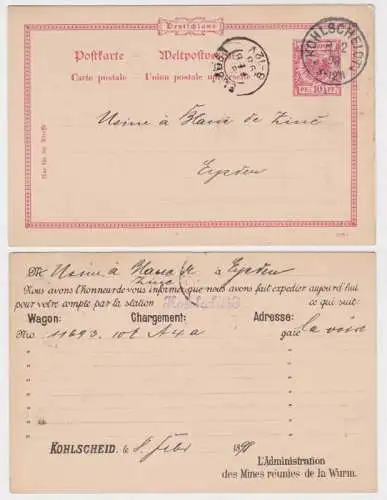 Deutschland
Postkarte Weltpostverein
Carte postale Union postale universelle
KOHLSCHEID
PF 10 PF
Nur für die Adresse
Usine à Blanc de Zinc
Eysden
M. Usine à Blanc de Zinc à Eysden
Nous avons l'honneur de vous informer que nous avons fait expedier aujourd'hui
pour votre compte par la station Kohlscheid ce qui suit:
Wagon: Chargement: Adresse:
Nro. 11693. 10t A4a gare la voire
KOHLSCHEID, le 8 Febr 1898
L'Administration
des Mines réunies de la Wurm.